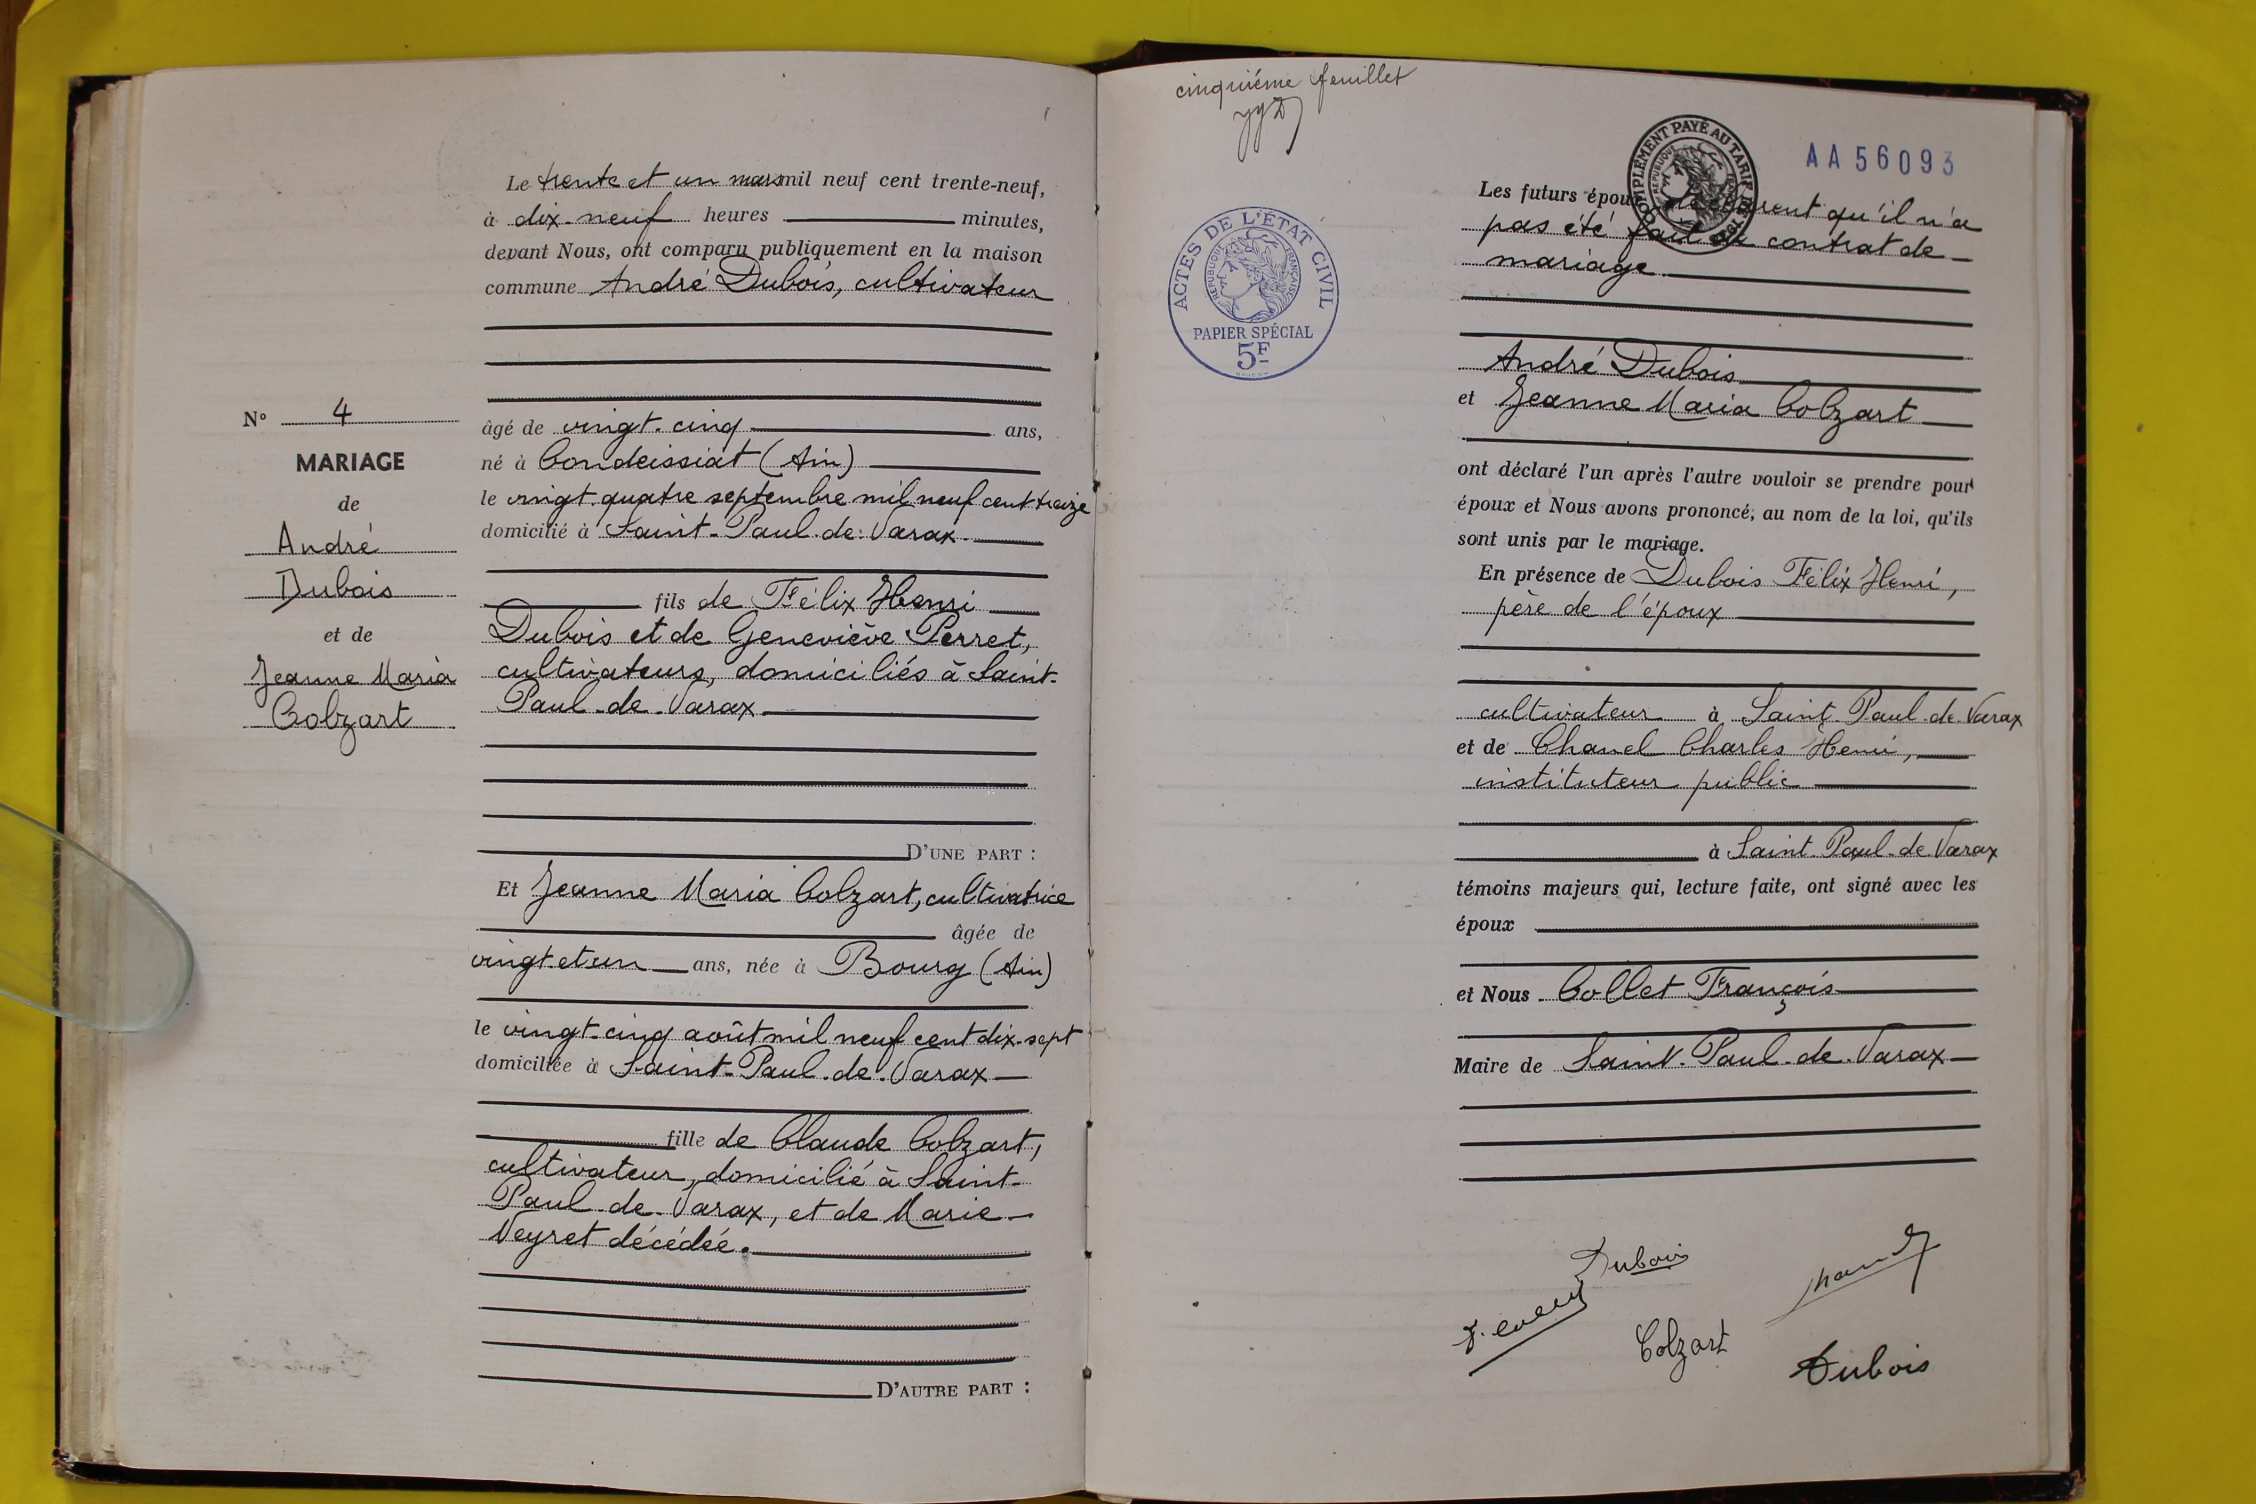 Le trente et un mars mil neuf cent trente-neuf,
à dix-neuf heures minutes,
devant Nous, ont comparu publiquement en la maison
commune André Dubois, cultivateur
N° 4
MARIAGE
de
André
Dubois
et de
Jeanne Maria
Colzart
âgé de vingt-cinq ans,
né à Condeissiat (Ain)
le vingt-quatre septembre mil neuf cent treize
domicilié à Saint-Paul-de-Varax
fils de Félix Henri
Dubois et de Geneviève Perret,
cultivateurs, domiciliés à Saint-
Paul-de-Varax
D'UNE PART :
Et Jeanne Maria Colzart, cultivatrice
âgée de
vingt et un ans, née à Bourg (Ain)
le vingt-cinq août mil neuf cent dix-sept
domiciliée à Saint-Paul-de-Varax
fille de Claude Colzart,
cultivateur, domicilié à Saint-
Paul-de-Varax, et de Marie
Veyret décédée.
D'AUTRE PART :
cinquième feuillet
COMPLÉMENT PAYÉ AU TARIF DE
RÉPUBLIQUE FRANÇAISE
AA 56093
ACTES DE L'ÉTAT CIVIL
RÉPUBLIQUE FRANÇAISE
PAPIER SPÉCIAL
5F
Les futurs époux déclarent qu'il n'a
pas été fait de contrat de
mariage
André Dubois
et Jeanne Maria Colzart
ont déclaré l'un après l'autre vouloir se prendre pour
époux et Nous avons prononcé, au nom de la loi, qu'ils
sont unis par le mariage.
En présence de Dubois Félix Henri,
père de l'époux
cultivateur à Saint-Paul-de-Varax
et de Chanel Charles Henri,
instituteur public
à Saint-Paul-de-Varax
témoins majeurs qui, lecture faite, ont signé avec les
époux
et Nous Collet François
Maire de Saint-Paul-de-Varax
Dubois
Colzart
Dubois